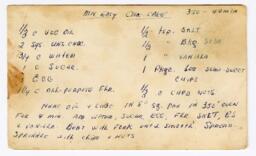 MIX EASY CHOC CAKE 350 - 40 MIN
1/3 C VEG OIL
2 SQS UNS. CHOC.
3/4 C WATER
1 C SUGAR
EGG
1 1/4 C ALL-PURPOSE FLR.
1/2 TSP. SALT
1/2 BKG SODA
1 VANILLA
1 PKGE. SEMI SWEET
CHIPS
1/3 C CHPD NUTS
HEAT OIL & CHOC IN 8" SQ. PAN IN 350° OVEN
FOR 4 MIN ADD WATER, SUGAR, EGG, FLR, SALT, BS
& VANILLA. BEAT WITH FORK UNTIL SMOOTH. SPREAD
SPRINKLE WITH CHIPS & NUTS